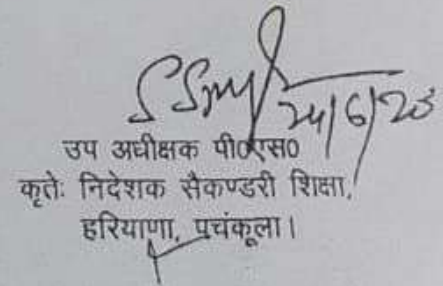 24/6/23
उप अधीक्षक पी०एस०
कृतेः निदेशक सैकण्डरी शिक्षा,
हरियाणा, पचंकूला।